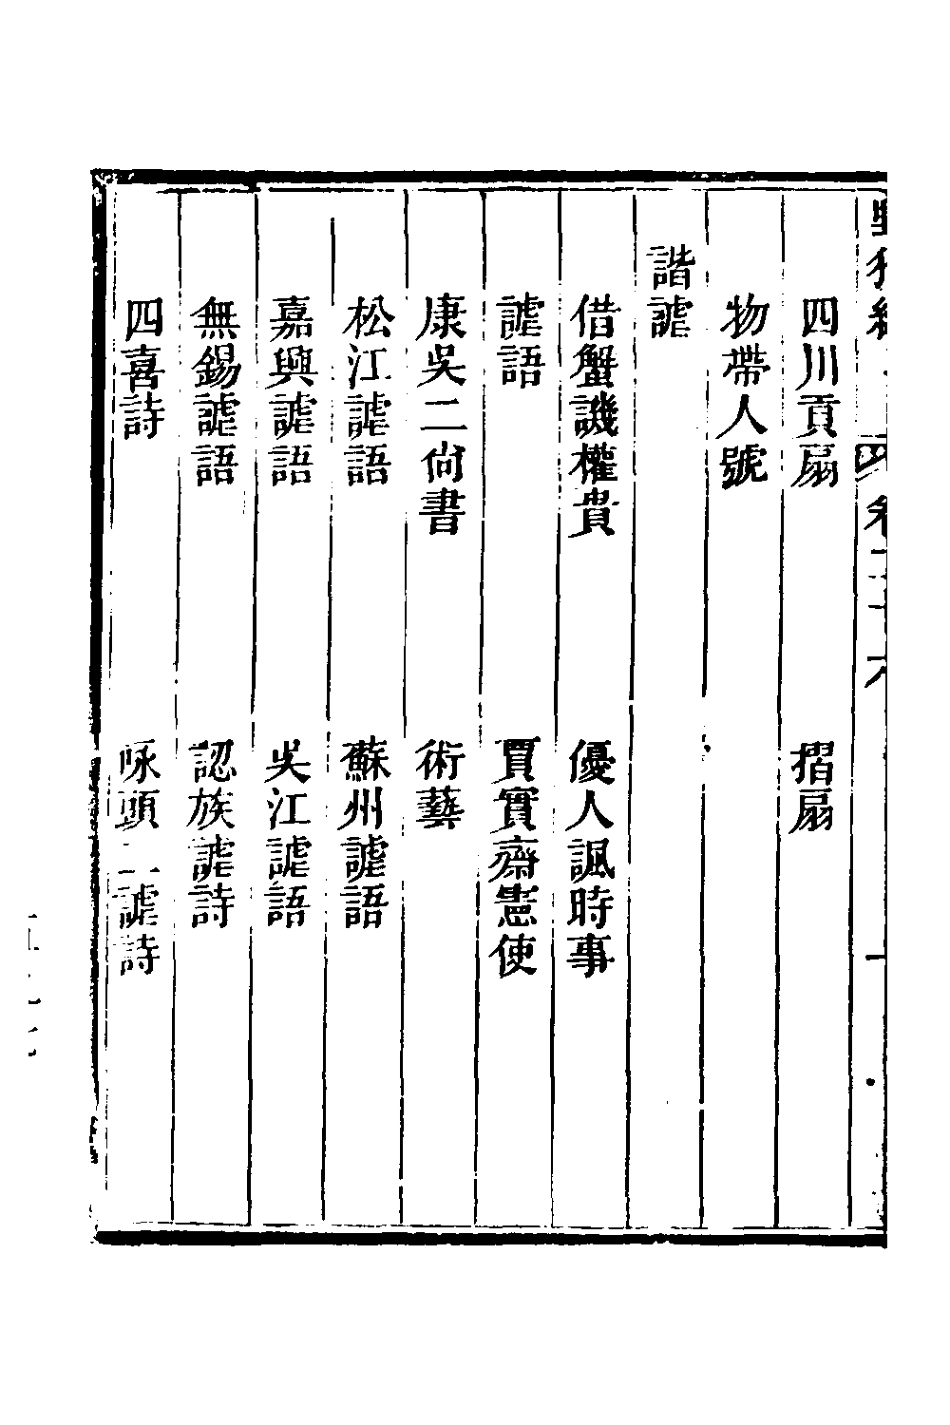 四川貢扇 摺扇
物帶人號
諧謔
借蟹譏權貴 優人諷時事
謔語 賈實齋憲使
康吳二尙書 術藝
松江謔語 蘇州謔語
嘉興謔語 吳江謔語
無錫謔語 認族謔詩
四喜詩 咏頭二謔詩